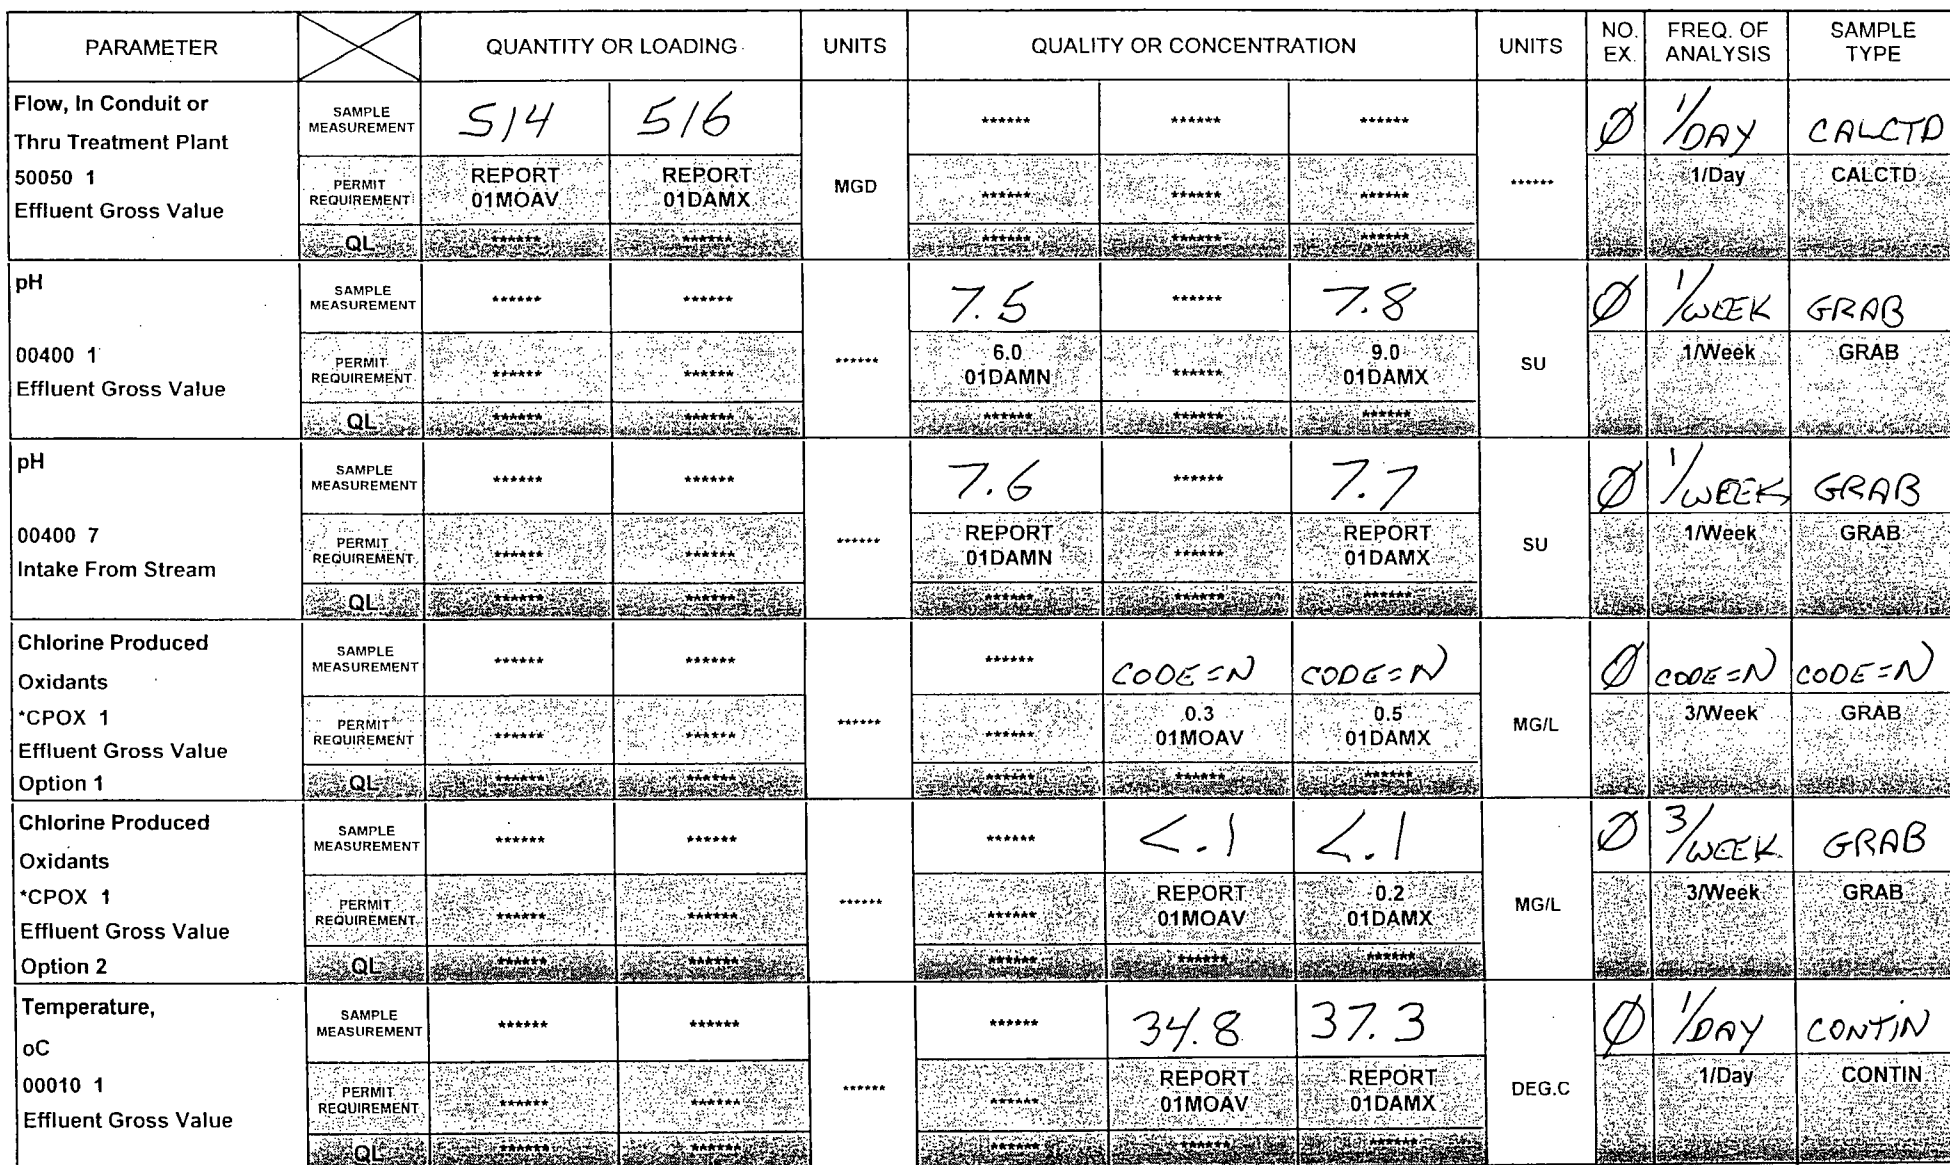 PARAMETER QUANTITY OR LOADING UNITS QUALITY OR CONCENTRATION UNITS NO. EX. FREQ. OF ANALYSIS SAMPLE TYPE
Flow, In Conduit or
Thru Treatment Plant
50050 1
Effluent Gross Value
SAMPLE MEASUREMENT 514 516 ****** ****** ****** Ø 1/DAY CALCTD
PERMIT REQUIREMENT REPORT 01MOAV REPORT 01DAMX MGD ****** ****** ****** ****** 1/Day CALCTD
QL ****** ****** ****** ****** ******
pH
00400 1
Effluent Gross Value
SAMPLE MEASUREMENT ****** ****** 7.5 ****** 7.8 Ø 1/WEEK GRAB
PERMIT REQUIREMENT ****** ****** ****** 6.0 01DAMN ****** 9.0 01DAMX SU 1/Week GRAB
QL ****** ****** ****** ****** ******
pH
00400 7
Intake From Stream
SAMPLE MEASUREMENT ****** ****** 7.6 ****** 7.7 Ø 1/WEEK GRAB
PERMIT REQUIREMENT ****** ****** ****** REPORT 01DAMN ****** REPORT 01DAMX SU 1/Week GRAB
QL ****** ****** ****** ****** ******
Chlorine Produced
Oxidants
*CPOX 1
Effluent Gross Value
Option 1
SAMPLE MEASUREMENT ****** ****** ****** CODE=N CODE=N Ø CODE=N CODE=N
PERMIT REQUIREMENT ****** ****** ****** ****** 0.3 01MOAV 0.5 01DAMX MG/L 3/Week GRAB
QL ****** ****** ****** ****** ******
Chlorine Produced
Oxidants
*CPOX 1
Effluent Gross Value
Option 2
SAMPLE MEASUREMENT ****** ****** ****** <.1 <.1 Ø 3/WEEK GRAB
PERMIT REQUIREMENT ****** ****** ****** ****** REPORT 01MOAV 0.2 01DAMX MG/L 3/Week GRAB
QL ****** ****** ****** ****** ******
Temperature,
oC
00010 1
Effluent Gross Value
SAMPLE MEASUREMENT ****** ****** ****** 34.8 37.3 Ø 1/DAY CONTIN
PERMIT REQUIREMENT ****** ****** ****** ****** REPORT 01MOAV REPORT 01DAMX DEG.C 1/Day CONTIN
QL ****** ****** ****** ****** ******